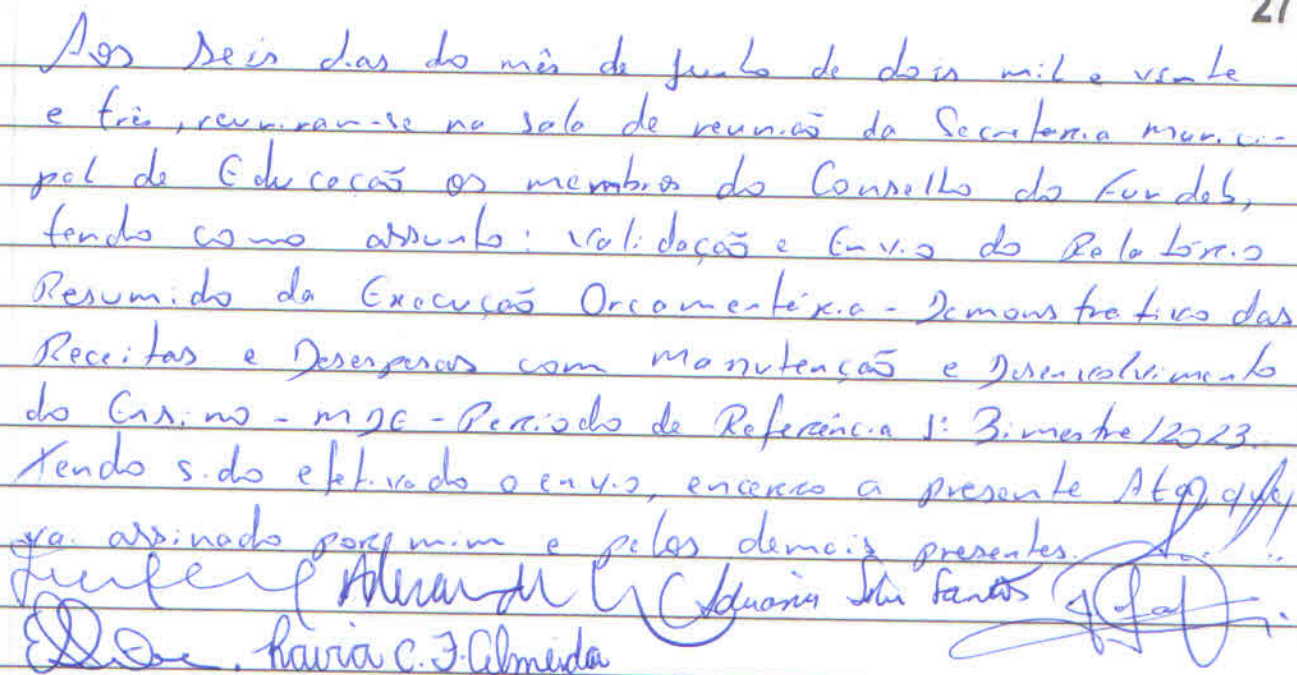 27
Aos seis dias do mês de junho de dois mil e vinte
e três, reuniram-se na sala de reunião da Secretaria munici-
pal de Educação os membros do Conselho do Fundeb,
tendo como assunto: validação e Envio do Relatório
Resumido da Execução Orçamentária - Demonstrativo das
Receitas e Desespesas com manutenção e Desenvolvimento
do Ensino - MDE - Período de Referência 1º Bimestre/2023.
Tendo sido efetivado o envio, encerro a presente Ata, que
vai assinado por mim e pelos demais presentes.
Santos
C. F. Almeida